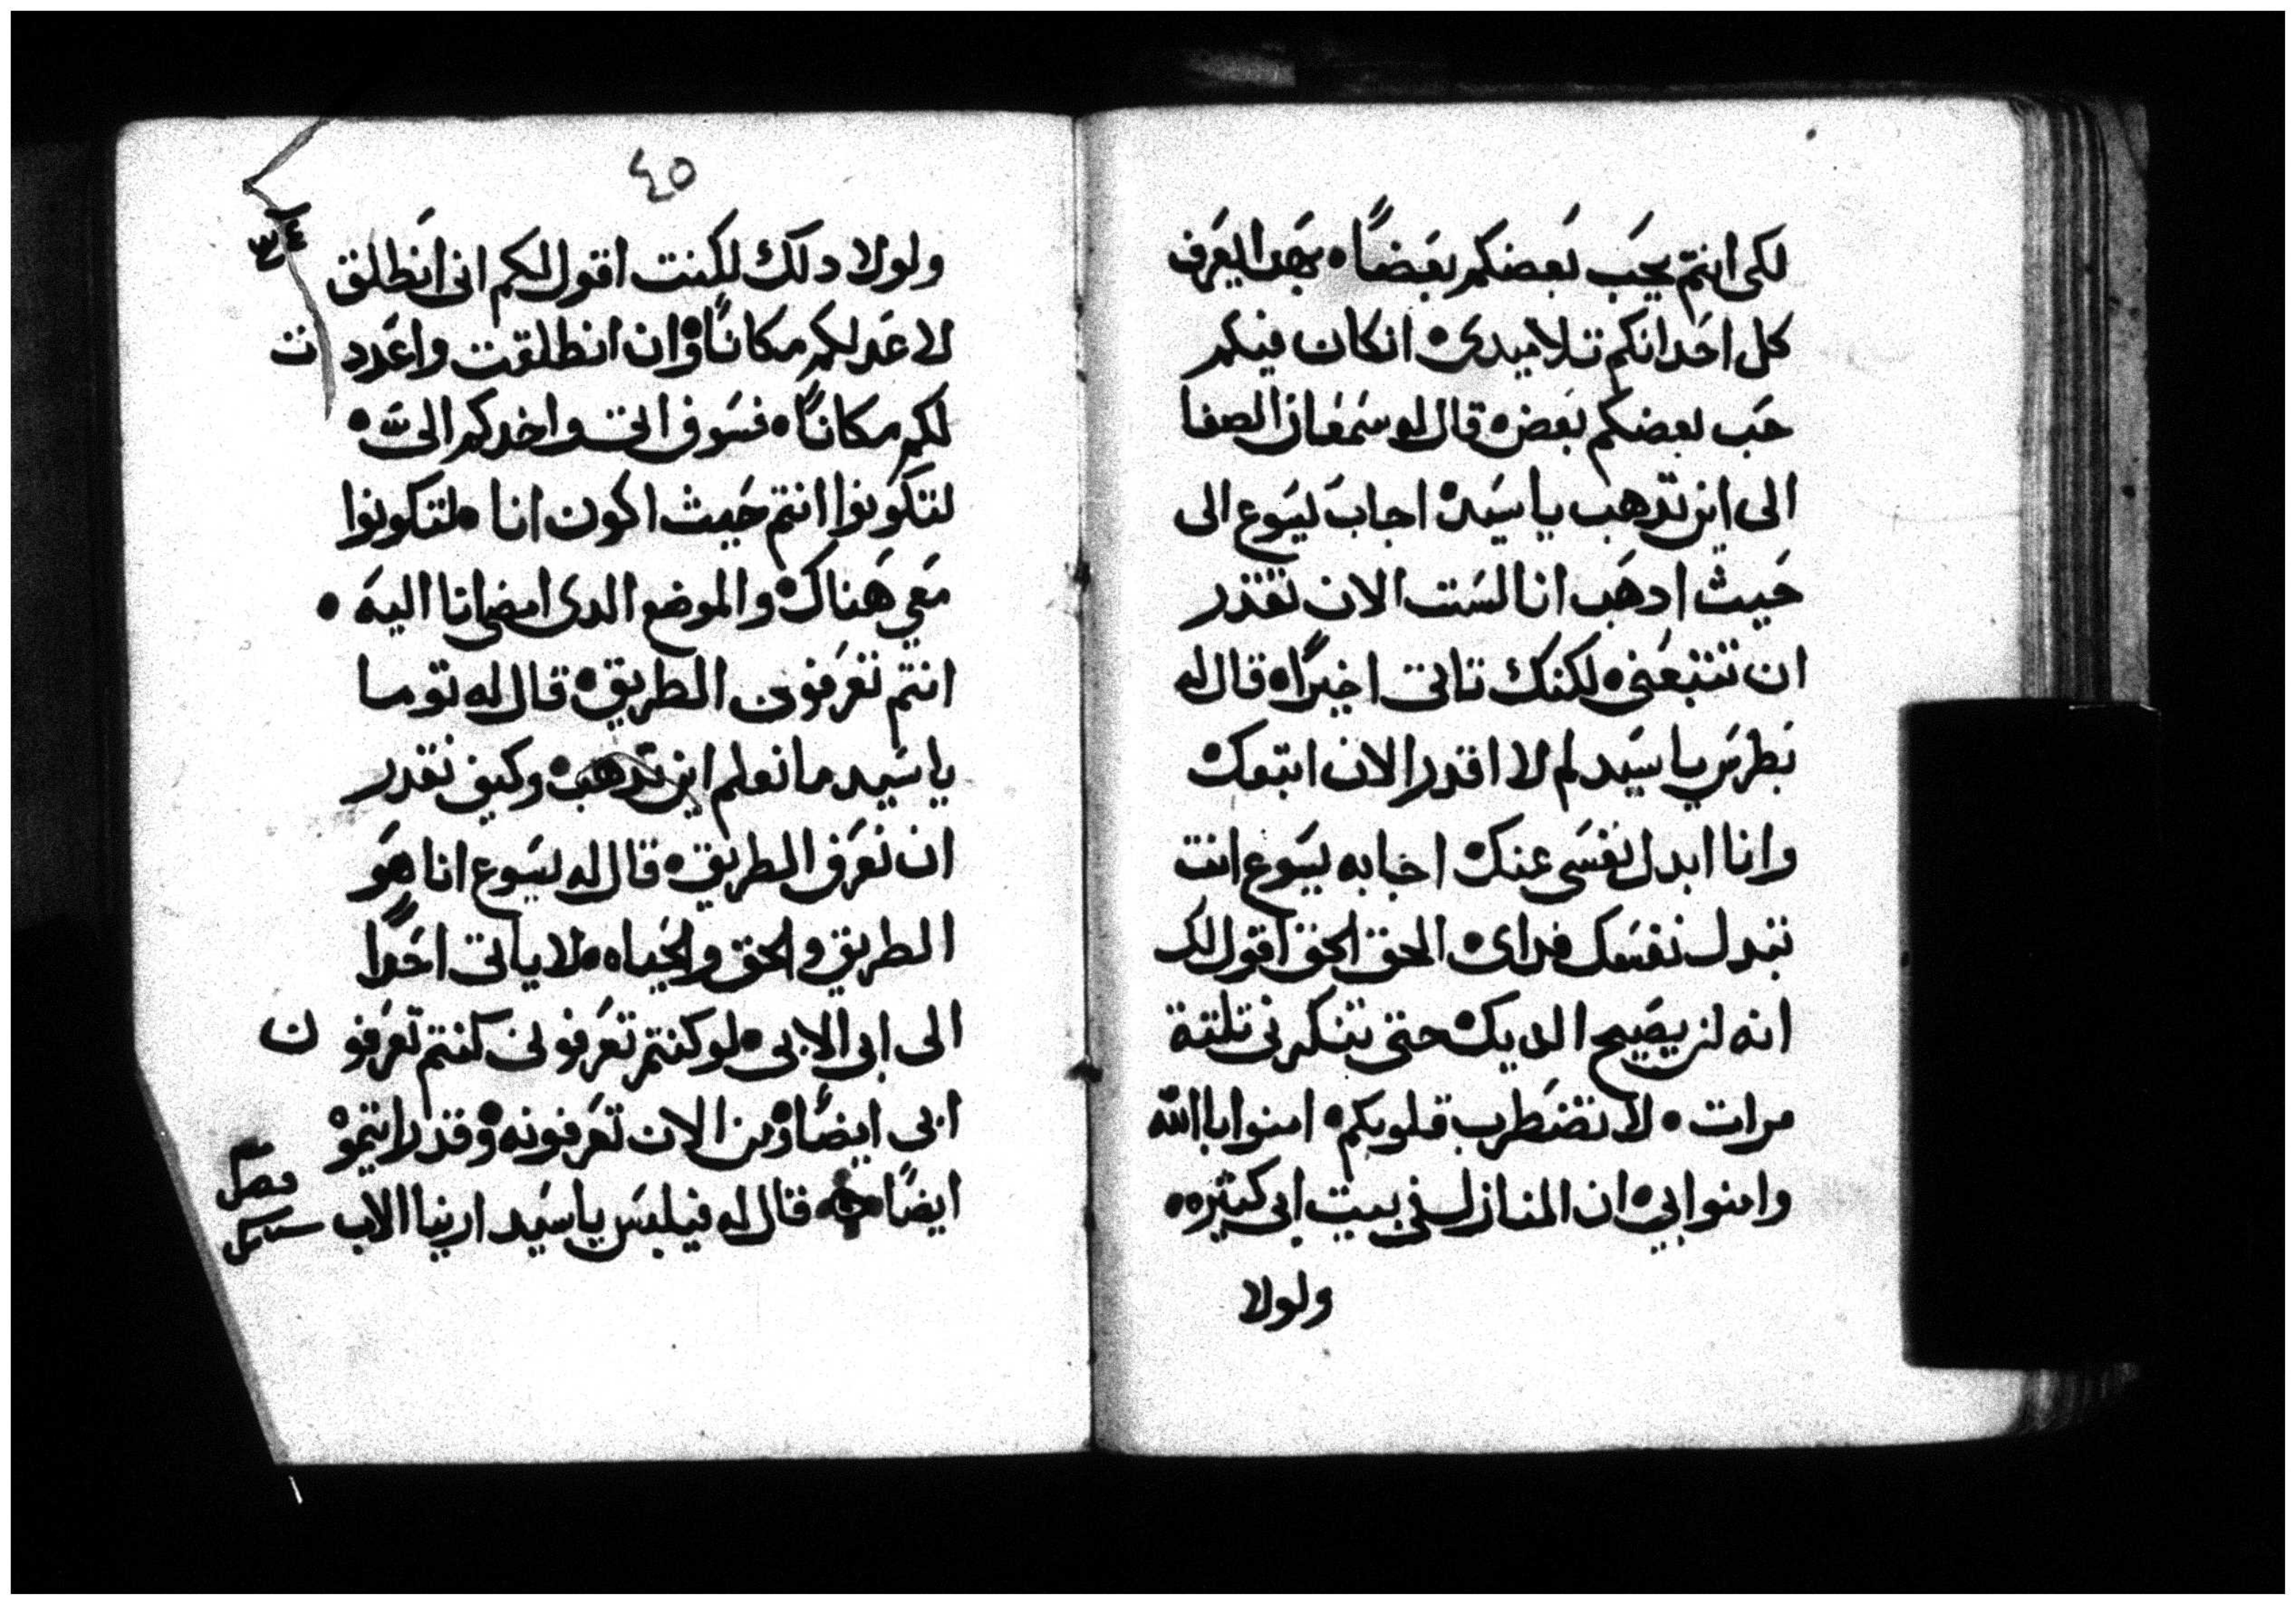 لكى انتم يحب بعضكم بعضًا • بهدا يعرف
كل احد انكم تلاميدى • ان كان فيكم
حب بعضكم بعض • قال له سمعان الصفا
الى اين تدهب يا سيد • اجاب يسوع الى
حيث ادهب انا لست الان تقدر
ان تتبعنى • لكنك تاتى اخيرًا • قال له
بطرس يا سيد لم لا اقدر الان اتبعك
وانا ابدل نفسى عنك • اجابه يسوع انت
تبدل نفسك فداى • الحق الحق اقول لك
انه لن يصيح الديك حتى تنكرنى تلتة
مرات • لا تضطرب قلوبكم • امنوا باالله
وامنوا بي • ان المنازل فى بيت ابى كثيره •
ولولا
٤٥
ولولا دلك لكنت اقول لكم انى انطلق
لاعد لكم مكانًا • وان انطلقت واعددت
لكم مكانًا • فسوف اتى واخدكم الىّ •
لتكونوا انتم حيث اكون انا • لتكونوا
معي هناك • والموضع الدى امضى انا اليه •
انتم تعرفون الطريق • قال له توما
يا سيد ما نعلم اين تدهب • وكيف نقدر
ان نعرف الطريق • قال له يسوع انا هو
الطريق والحق والحياه • لا ياتى احدًا
الى ابى الا بى • لو كنتم تعرفونى كنتم تعرفون
ابى ايضًا • ومن الان تعرفونه • وقد رايتموه
ايضًا • قال له فيلبس يا سيد ارينا الاب
فصل